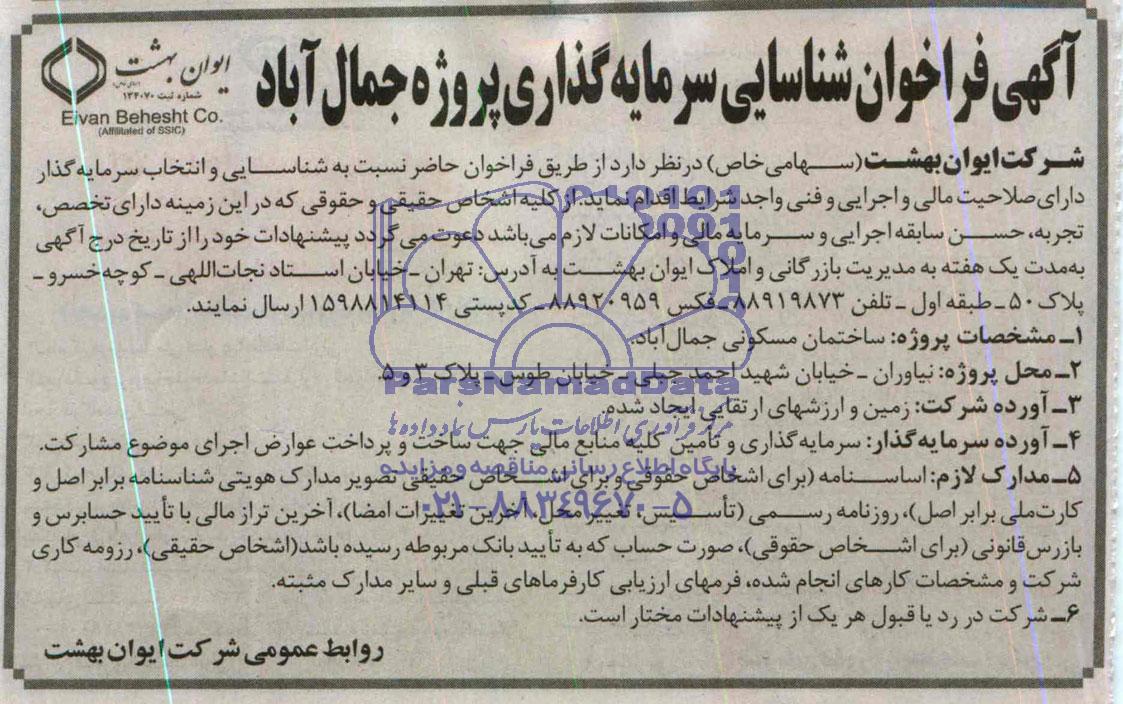 آگهی فراخوان شناسایی سرمایه‌گذاری پروژه جمال آباد
ایوان بهشت
شماره ثبت ۱۳۴۰۷۰
Eivan Behesht Co.
(Affilitated of SSIC)
شرکت ایوان بهشت (سهامی خاص) درنظر دارد از طریق فراخوان حاضر نسبت به شناسایی و انتخاب سرمایه‌گذار
دارای صلاحیت مالی و اجرایی و فنی واجد شرایط اقدام نماید، از کلیه اشخاص حقیقی و حقوقی که در این زمینه دارای تخصص،
تجربه، حسن سابقه اجرایی و سرمایه مالی و امکانات لازم می‌باشد دعوت می‌گردد پیشنهادات خود را از تاریخ درج آگهی
به‌مدت یک هفته به مدیریت بازرگانی و املاک ایوان بهشت به آدرس: تهران ـ خیابان استاد نجات‌اللهی ـ کوچه‌خسرو ـ
پلاک ۵۰ ـ طبقه اول ـ تلفن ۸۸۹۱۹۸۷۳ ـ فکس ۸۸۹۲۰۹۵۹ ـ کدپستی ۱۵۹۸۸۱۴۱۱۴ ارسال نمایند.
۱ـ مشخصات پروژه: ساختمان مسکونی جمال‌آباد.
۲ـ محل پروژه: نیاوران ـ خیابان شهید احمد جبلی ـ خیابان طوس ـ پلاک ۳ و ۵.
ParsNamadData
۳ـ آورده شرکت: زمین و ارزشهای ارتقایی ایجاد شده.
مرکز فرآوری اطلاعات پارس نماد داده‌ها
۴ـ آورده سرمایه‌گذار: سرمایه‌گذاری و تأمین کلیه منابع مالی جهت ساخت و پرداخت عوارض اجرای موضوع مشارکت.
پایگاه اطلاع رسانی مناقصه و مزایده
۵ـ مدارک لازم: اساسنامه (برای اشخاص حقوقی و برای اشخاص حقیقی تصویر مدارک هویتی شناسنامه برابر اصل و
۰۲۱-۸۸۳۴۹۶۷۰-۵
کارت‌ملی برابر اصل)، روزنامه رسمی (تأسیس، تغییر محل، آخرین تغییرات امضا)، آخرین تراز مالی با تأیید حسابرس و
بازرس قانونی (برای اشخاص حقوقی)، صورت حساب که به تأیید بانک مربوطه رسیده باشد(اشخاص حقیقی)، رزومه کاری
شرکت و مشخصات کارهای انجام شده، فرمهای ارزیابی کارفرماهای قبلی و سایر مدارک مثبته.
۶ـ شرکت در رد یا قبول هر یک از پیشنهادات مختار است.
روابط عمومی شرکت ایوان بهشت